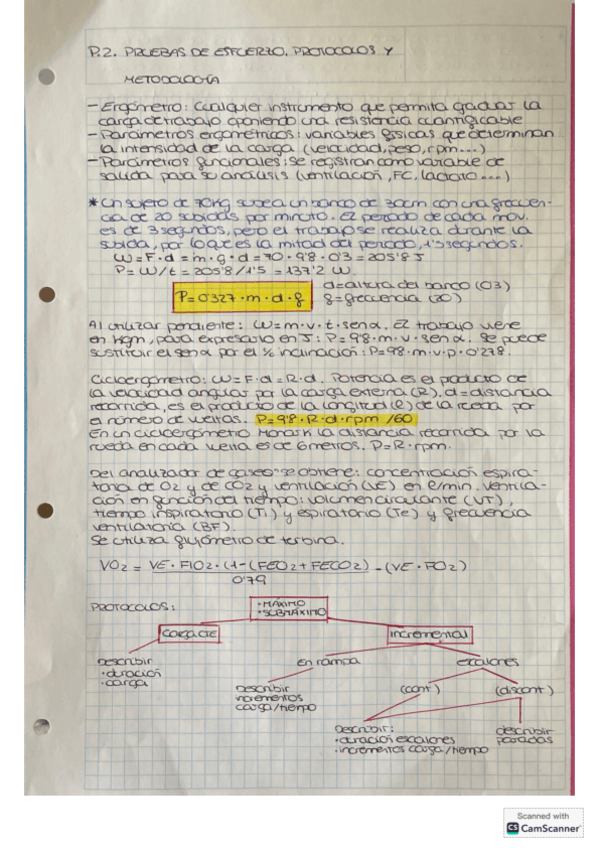 P.2. PRUEBAS DE ESFUERZO. PROTOCOLOS Y
METODOLOGÍA
- Ergómetro: cualquier instrumento que permita graduar la
carga de trabajo oponiendo una resistencia cuantificable
- Parámetros ergométricos: variables físicas que determinan
la intensidad de la carga (velocidad, peso, rpm...)
- Parámetros funcionales: se registran como variable de
salida para su análisis (ventilación, FC, lactato...)
* Un sujeto de 70kg sube a un banco de 30cm con una frecuen-
cia de 20 subidas por minuto. El periodo de cada mov.
es de 3 segundos, pero el trabajo se realiza durante la
subida, por lo que es la mitad del periodo, 1'5 segundos.
W = F · d = m · g · d = 70 · 9'8 · 0'3 = 205'8 J
P = W/t = 205'8/1'5 = 137'2 W.
P = 0'327 · m · d · f
d = altura del banco (0'3)
f = frecuencia (20)
Al utilizar pendiente: W = m · v · t · sen α. El trabajo viene
en kgm, para expresarlo en J: P = 9'8 · m · v · sen α. Se puede
sustituir el sen α por el % inclinación: P = 9'8 · m · v · p · 0'278.
Cicloergómetro: W = F · d = R · d. Potencia es el producto de
la velocidad angular por la carga externa (R). d = distancia
recorrida, es el producto de la longitud (l) de la rueda por
el número de vueltas. P = 9'8 · R · d · rpm /60
En un cicloergómetro Monark la distancia recorrida por la
rueda en cada vuelta es de 6 metros. P = R · rpm.
Del analizador de gases se obtiene: concentración espira-
toria de O2 y de CO2 y ventilación (VE) en l/min. Ventila-
ción en función del tiempo: volumen circulante (VT),
tiempo inspiratorio (Ti) y espiratorio (Te) y frecuencia
ventilatoria (BF).
Se utiliza flujómetro de turbina.
VO2 = VE · FIO2 · (1 - (FEO2 + FECO2)) / 0'79 - (VE · FO2)
PROTOCOLOS:
· MÁXIMO
· SUBMÁXIMO
Carga cte
incremental
Describir
· duración
· carga
en rampa
escalones
Describir
incrementos
carga/tiempo
(cont)
(discont)
Describir:
· duración escalones
· incrementos carga/tiempo
describir
paradas
Scanned with
CS CamScanner